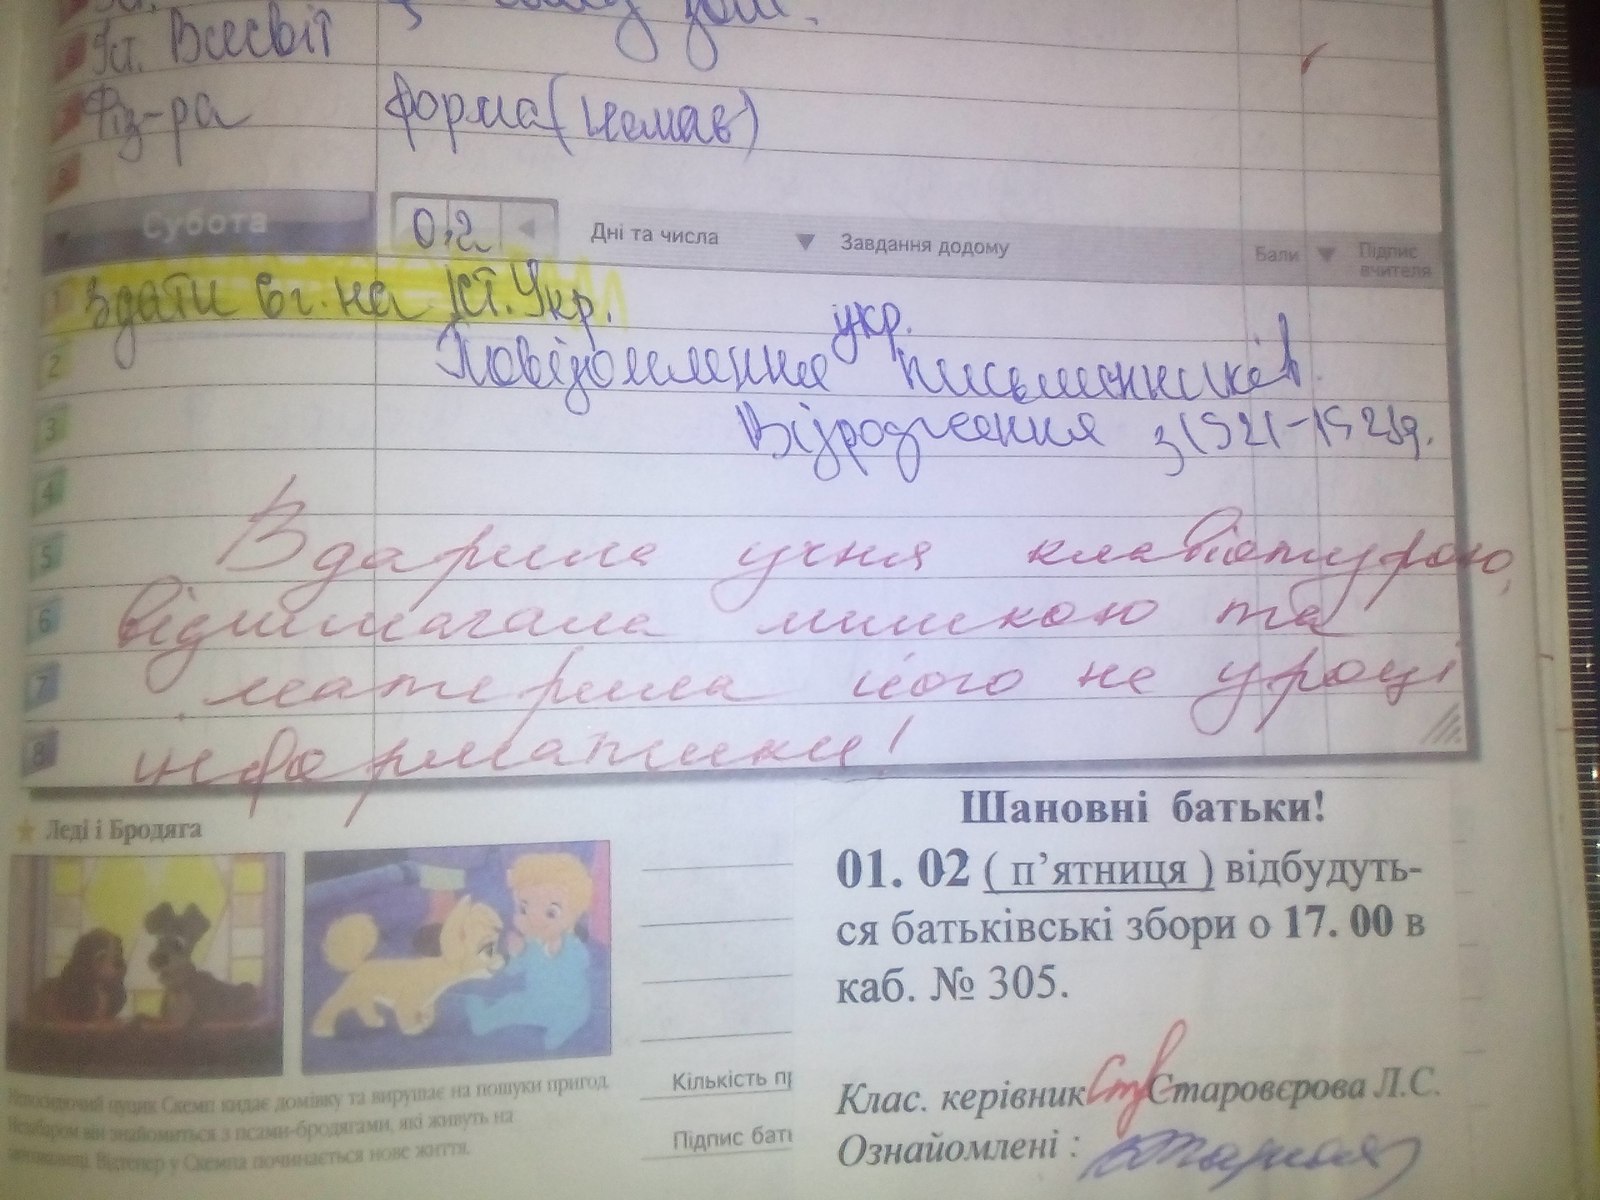 Іст. Всесвіт
Фіз-ра форма (немає)
9
Субота 0,2 Дні та числа Завдання додому Бали Підпис вчителя
1 Здати вг. на Іст. Укр.
укр.
2 Повідомлення письменників
3 Відродження з 1921-1929р.
4
5 Вдарила учня клавіатурою,
6 відшмагала мишкою та
7 материла його на уроці
8 інформатики!
Леді і Бродяга
Непосидючий цуцик Скемп кидає домівку та вирушає на пошуки пригод.
Незабаром він знайомиться з псами-бродягами, які живуть на
Відтепер у Скемпа починається нове життя.
Кількість пр
Підпис бать
Шановні батьки!
01. 02 ( п’ятниця ) відбудуть-
ся батьківські збори о 17. 00 в
каб. № 305.
Клас. керівник Старовєрова Л.С.
Ознайомлені :